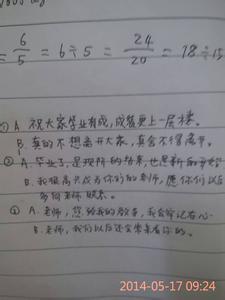 = 6/5 = 6÷5 = 24/20 = 18÷15
① A. 祝大家学业有成,成绩更上一层楼。
B. 真的不想离开大家,真舍不得离开。
② A. 毕业了,是现阶段的结束,也是新的开始
B. 我很高兴成为你们的老师,愿你们以后
多向老师联系。
③ A. 老师,您给我的教育,我会牢记在心
B. 老师,我们以后还会常来看你的。
2014-05-17 09:24